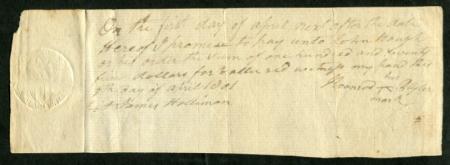 On the first day of april next after the date
Here of I promise to pay unto John Waugh
or his order the sum of one hundred and twenty
five dollars for value red witness my hand this
9th day of april 1801
his
Koonrod x
mark
James Holliman